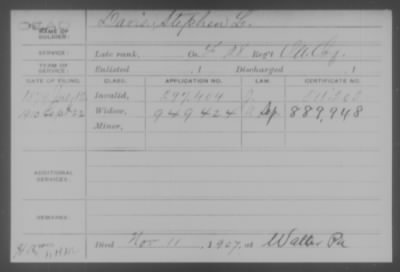 NAME OF SOLDIER: Davis, Stephen
SERVICE: Late rank, Co. 28 Reg't
TERM OF SERVICE: Enlisted , 1 Discharged , 1
DATE OF FILING. CLASS. APPLICATION NO. LAW. CERTIFICATE NO.
Invalid, 297,404
Widow, 949424 889,948
Minor,
ADDITIONAL SERVICES:
REMARKS:
Died Nov. 11, 1907, at Walter Pa